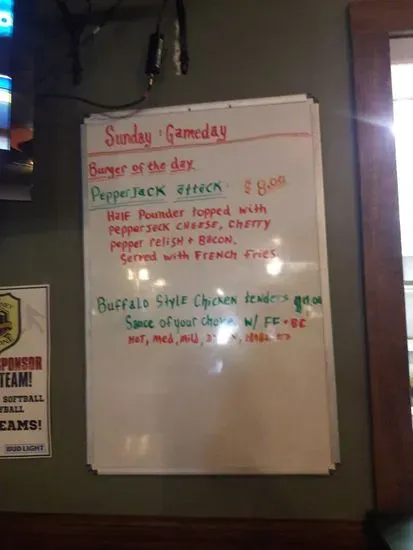 Sunday : Gameday
Burger of the day
PepperJack attack $8.00
Half Pounder topped with
pepperjeck CHEESE, CHerry
pepper relish + BACON.
Served with FRENCH fries
Buffalo Style Chicken tenders
Sauce of your choice W/ FF + BC
HOT, Med, Mild,
SPONSOR
TEAM!
SOFTBALL
TEAMS!
BUD LIGHT